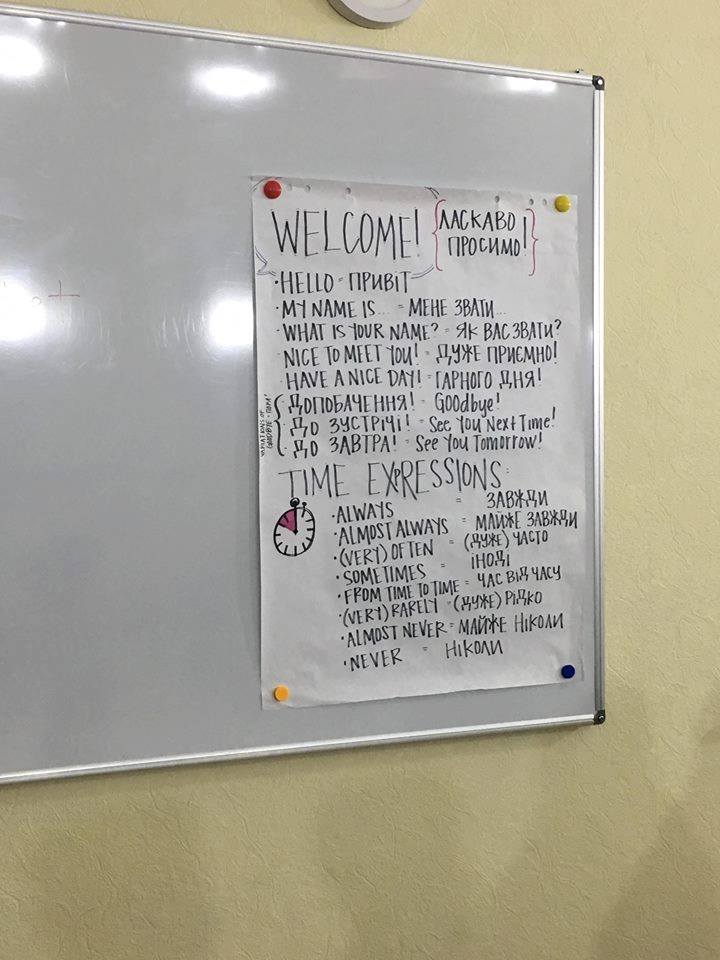 WELCOME! {ЛАСКАВО ПРОСИМО!}
· HELLO = ПРИВІТ
· MY NAME IS... = МЕНЕ ЗВАТИ...
· WHAT IS YOUR NAME? = ЯК ВАС ЗВАТИ?
NICE TO MEET YOU! = ДУЖЕ ПРИЄМНО!
· HAVE A NICE DAY! = ГАРНОГО ДНЯ!
VARIATIONS OF GOODBYE - ПОКА!
ДОПОБАЧЕННЯ! = Goodbye!
ДО ЗУСТРІЧІ! = See You Next Time!
ДО ЗАВТРА! = See You Tomorrow!
TIME EXPRESSIONS:
· ALWAYS = ЗАВЖДИ
· ALMOST ALWAYS = МАЙЖЕ ЗАВЖДИ
· (VERY) OFTEN = (ДУЖЕ) ЧАСТО
· SOMETIMES = ІНОДІ
· FROM TIME TO TIME = ЧАС ВІД ЧАСУ
· (VERY) RARELY = (ДУЖЕ) РІДКО
· ALMOST NEVER = МАЙЖЕ НІКОЛИ
· NEVER = НІКОЛИ